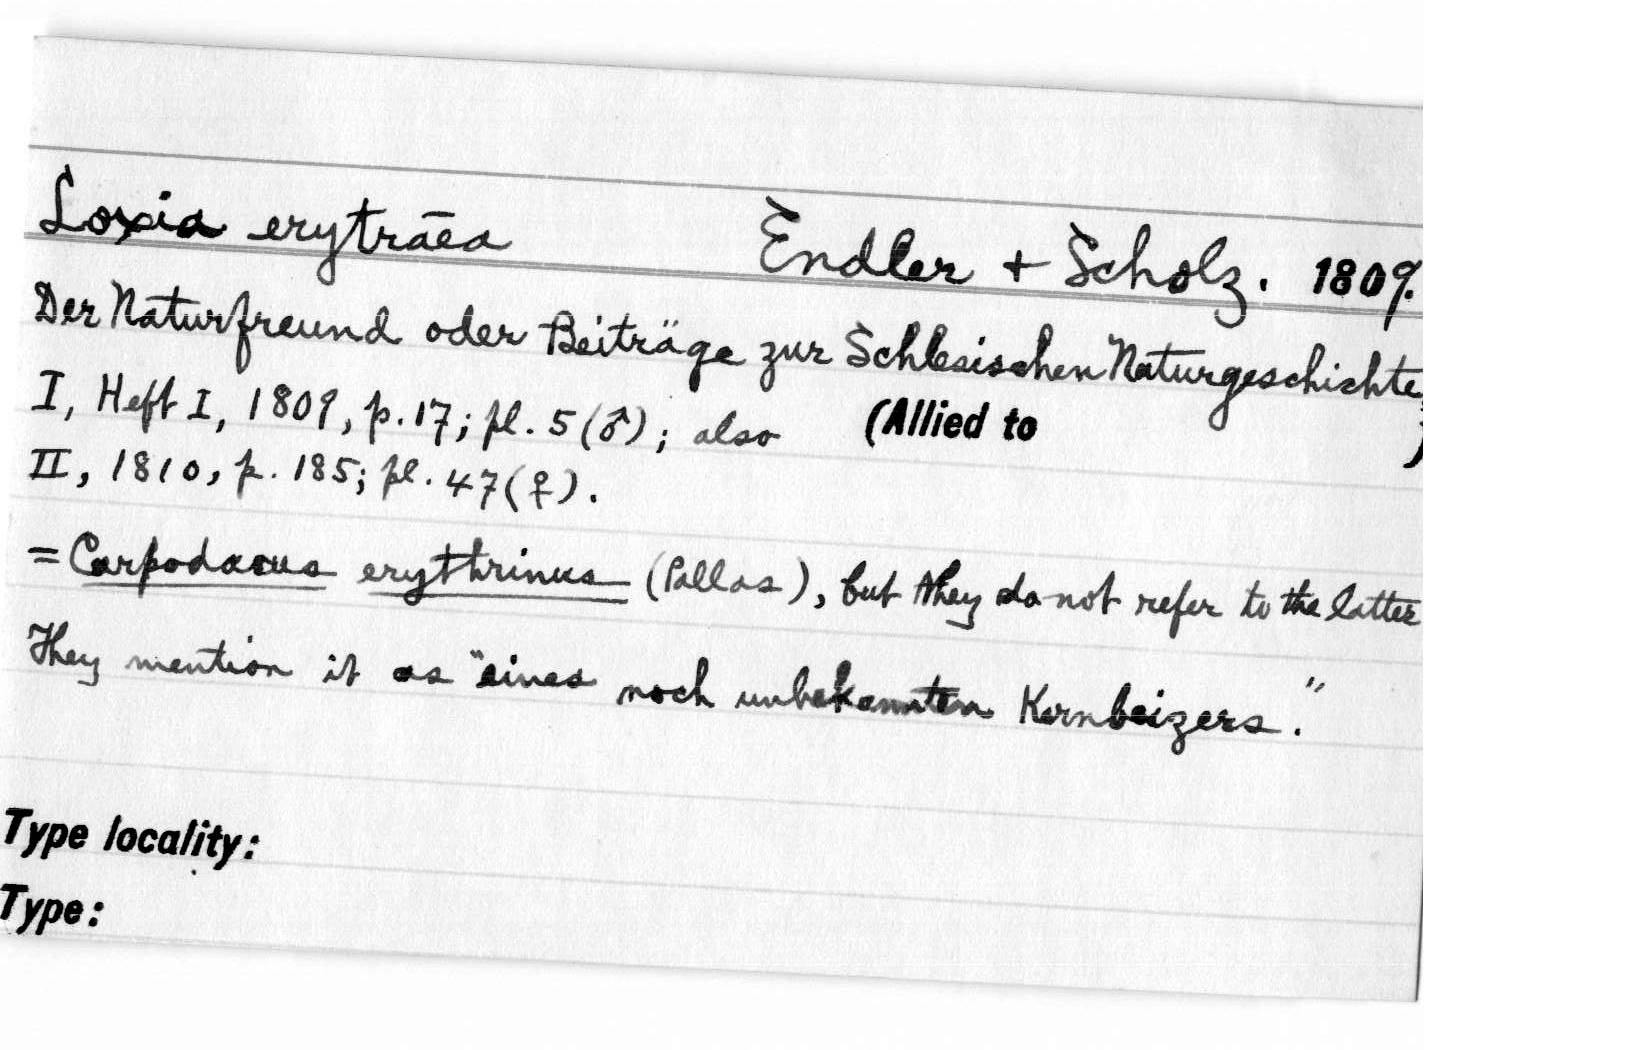 Loxia erytrāea Endler + Scholz. 1809.
Der Naturfreund oder Beiträge zur Schlesischen Naturgeschichte,
I, Heft I, 1809, p. 17; pl. 5 (♂); also (Allied to )
II, 1810, p. 185; pl. 47 (♀).
= Carpodacus erythrinus (Pallas), but they do not refer to the latter
They mention it as "eines noch unbekannten Kernbeizers."
Type locality:
Type: